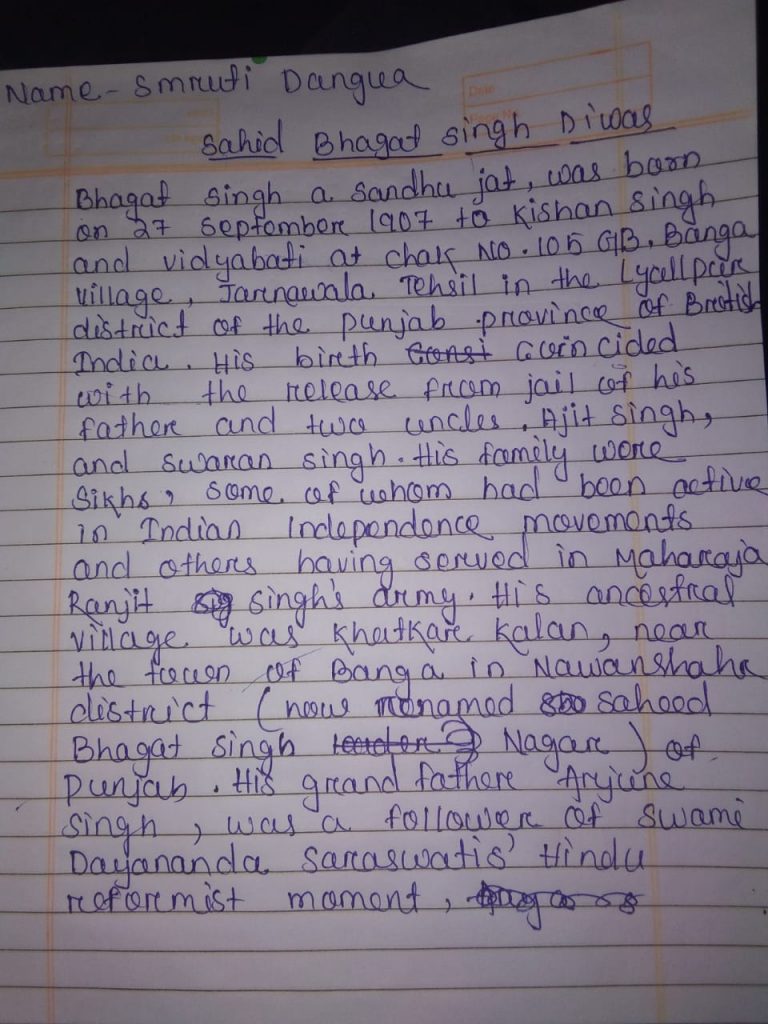 Name - Smruti Dangua
Sahid Bhagat Singh Diwas
Bhagat Singh a Sandhu jat, was born
on 27 September 1907 to Kishan Singh
and vidyabati at chak NO. 105 GB, Banga
village, Jarnawala Tehsil in the Lyallpur
district of the punjab province of British
India. His birth coin cided
with the release from jail of his
father and two uncles, Ajit Singh,
and swaran singh. His family were
Sikhs, some of whom had been active
in Indian Independence movements
and others having served in Maharaja
Ranjit singh's army. His ancestral
village was Khatkar Kalan, near
the town of Banga in Nawanshahr
district (now renamed saheed
Bhagat singh Nagar) of
punjab. His grand father Arjune
singh, was a follower of swami
Dayananda saraswatis' Hindu
reformist moment,